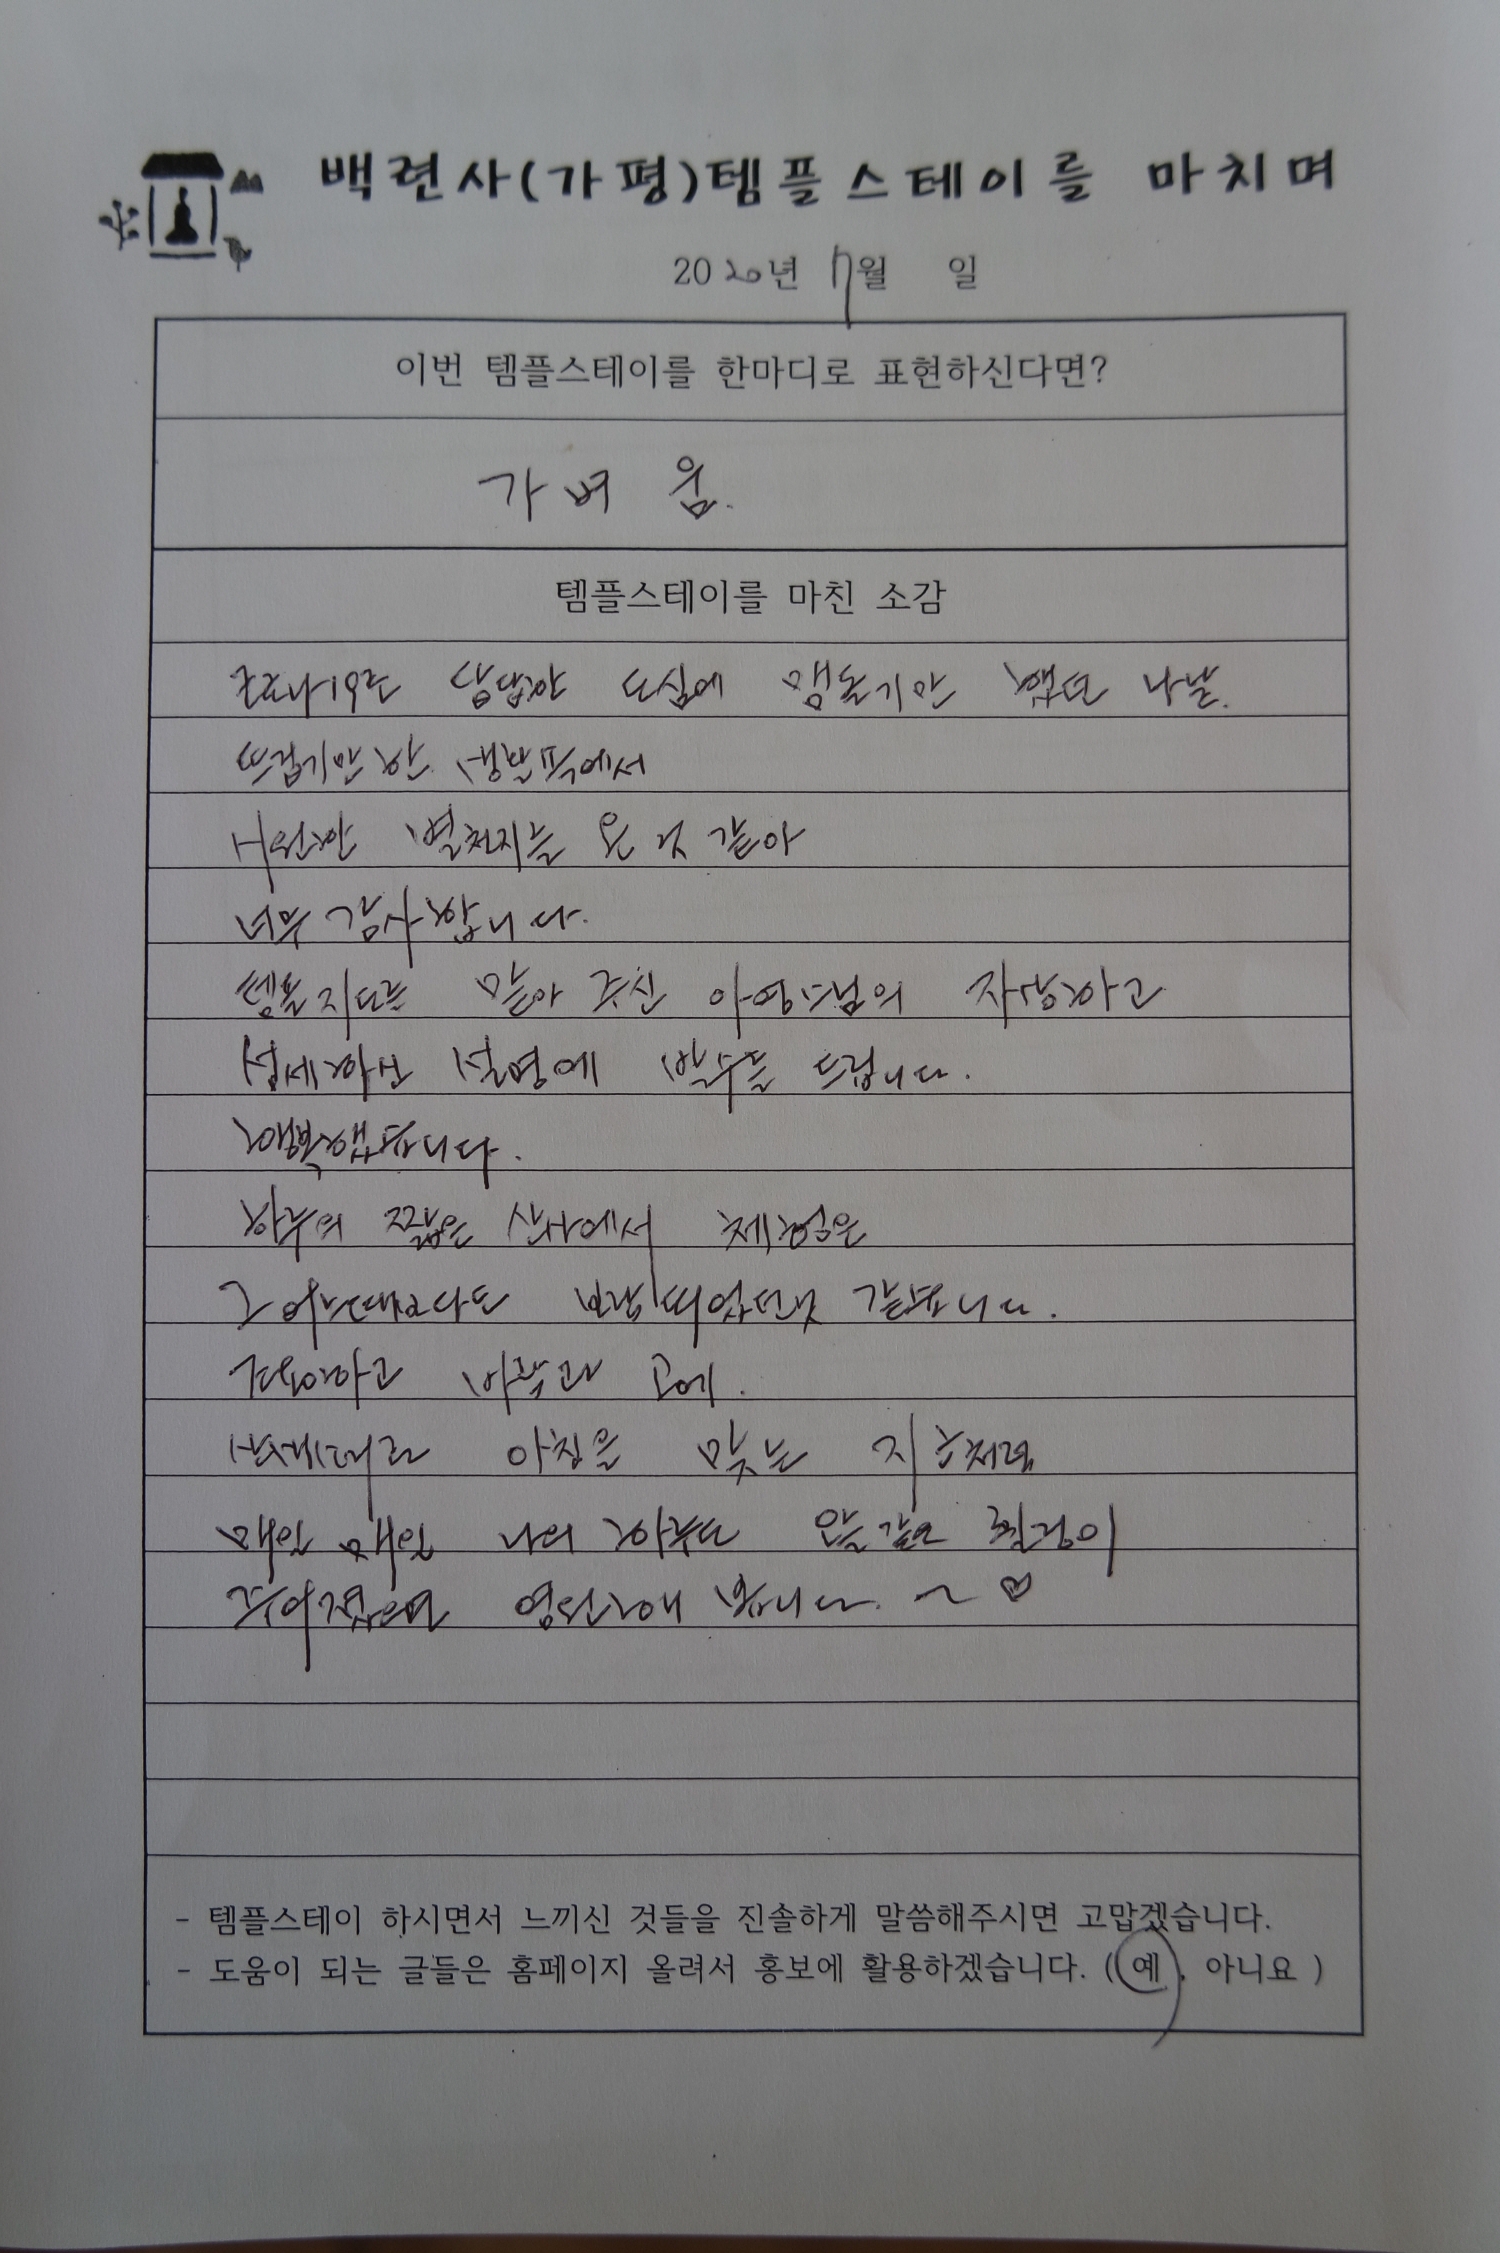 백련사(가평)템플스테이를 마치며
2020년 7월 일
이번 템플스테이를 한마디로 표현하신다면?
가벼움.
템플스테이를 마친 소감
코로나19로 답답한 도심에 맴돌기만 했던 나날.
뜨겁기만한
시원한 별천지를 온 것 같아
너무 감사합니다.
템플지도를 맡아 주신 스님의 자상하고
섬세하신 설명에 박수를 드립니다.
행복했습니다.
하루의 짧은 산사에서 체험은
그 어느때보다도 보람되었던것 같습니다.
하고
아침을 맞는 지금처럼
매일 매일 나의 하루도 일정이
주어졌으면 봅니다. ~ ♡
- 템플스테이 하시면서 느끼신 것들을 진솔하게 말씀해주시면 고맙겠습니다.
- 도움이 되는 글들은 홈페이지 올려서 홍보에 활용하겠습니다. ( 예 , 아니요 )